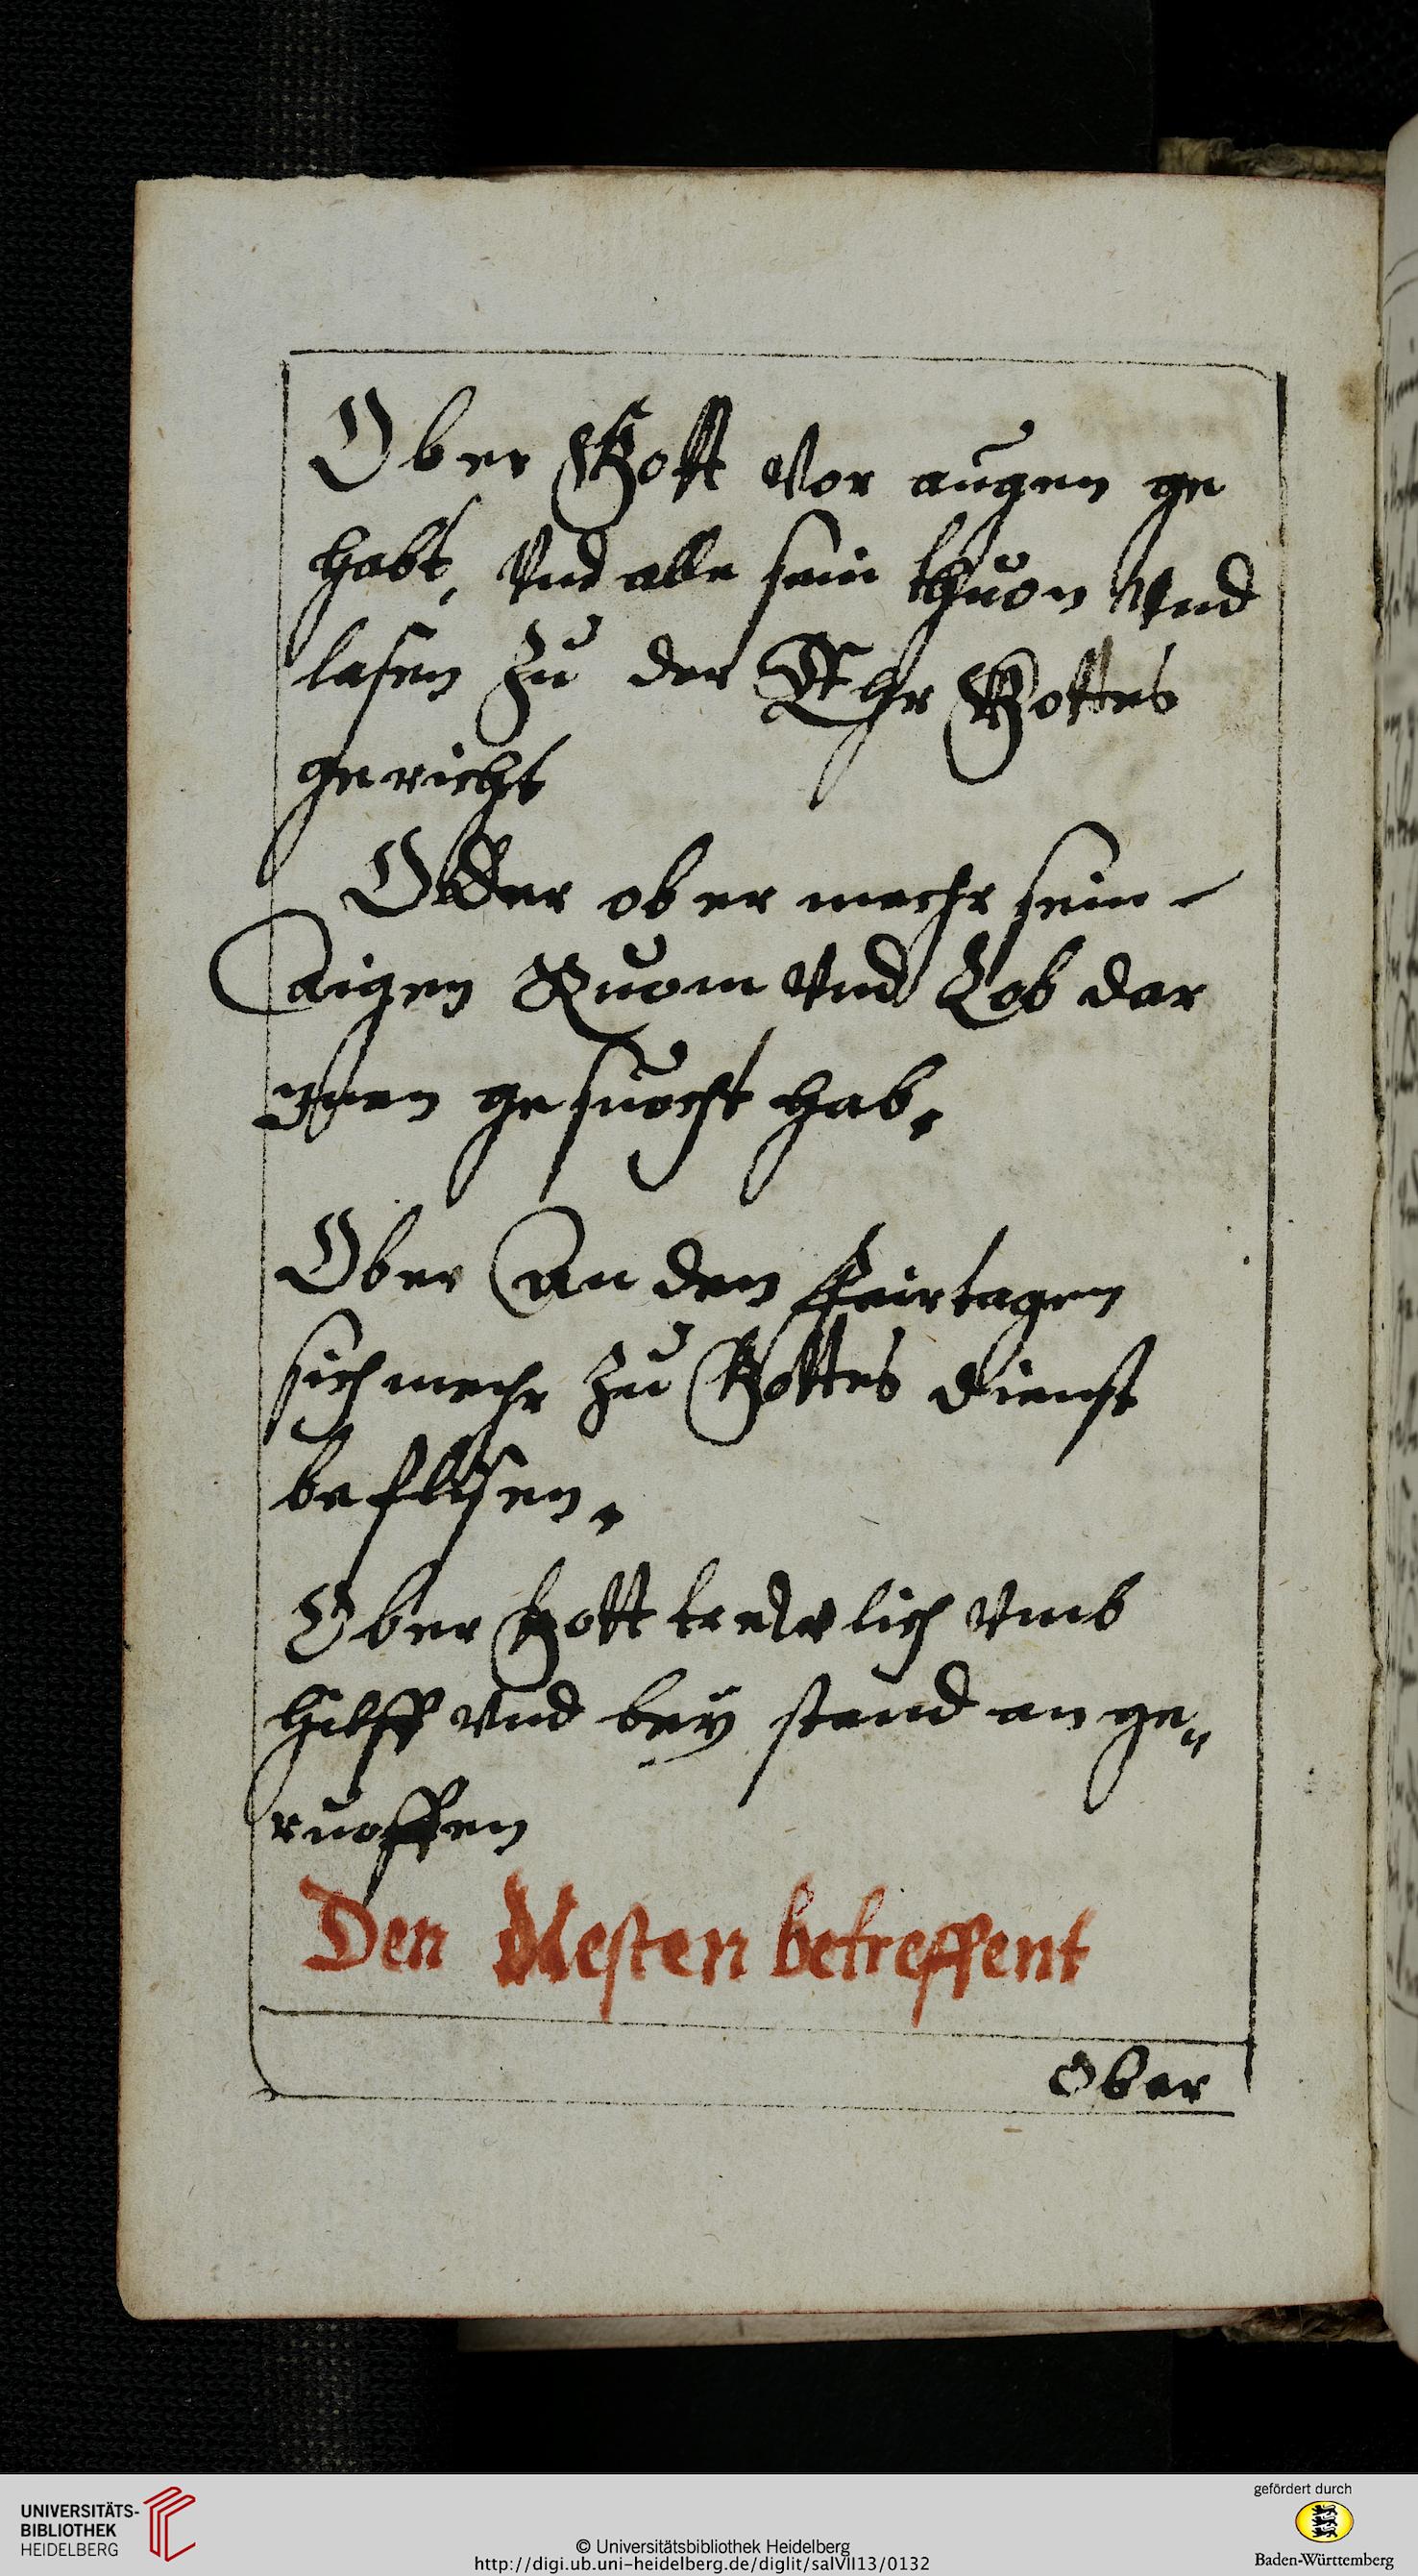 Ob er Gott vor augen ge
habt, Vnd alle sein thuon Vnd
lasen zu der Ehr Gottes
gericht
Oder ob er mechr sein
aigen Ruom Vnd Lob dar
Inen gesuocht hab.
Ob er An den feirtagen
sich mechr zu Gottes dienst
beflisen.
Ob er Gott trewlich vmb
hilff vnd bey stand an ge„
ruoffen
Den Nesten betreffent
Ob er
UNIVERSITÄTS-
BIBLIOTHEK
HEIDELBERG
© Universitätsbibliothek Heidelberg
http://digi.ub.uni-heidelberg.de/diglit/salVII13/0132
gefördert durch
Baden-Württemberg